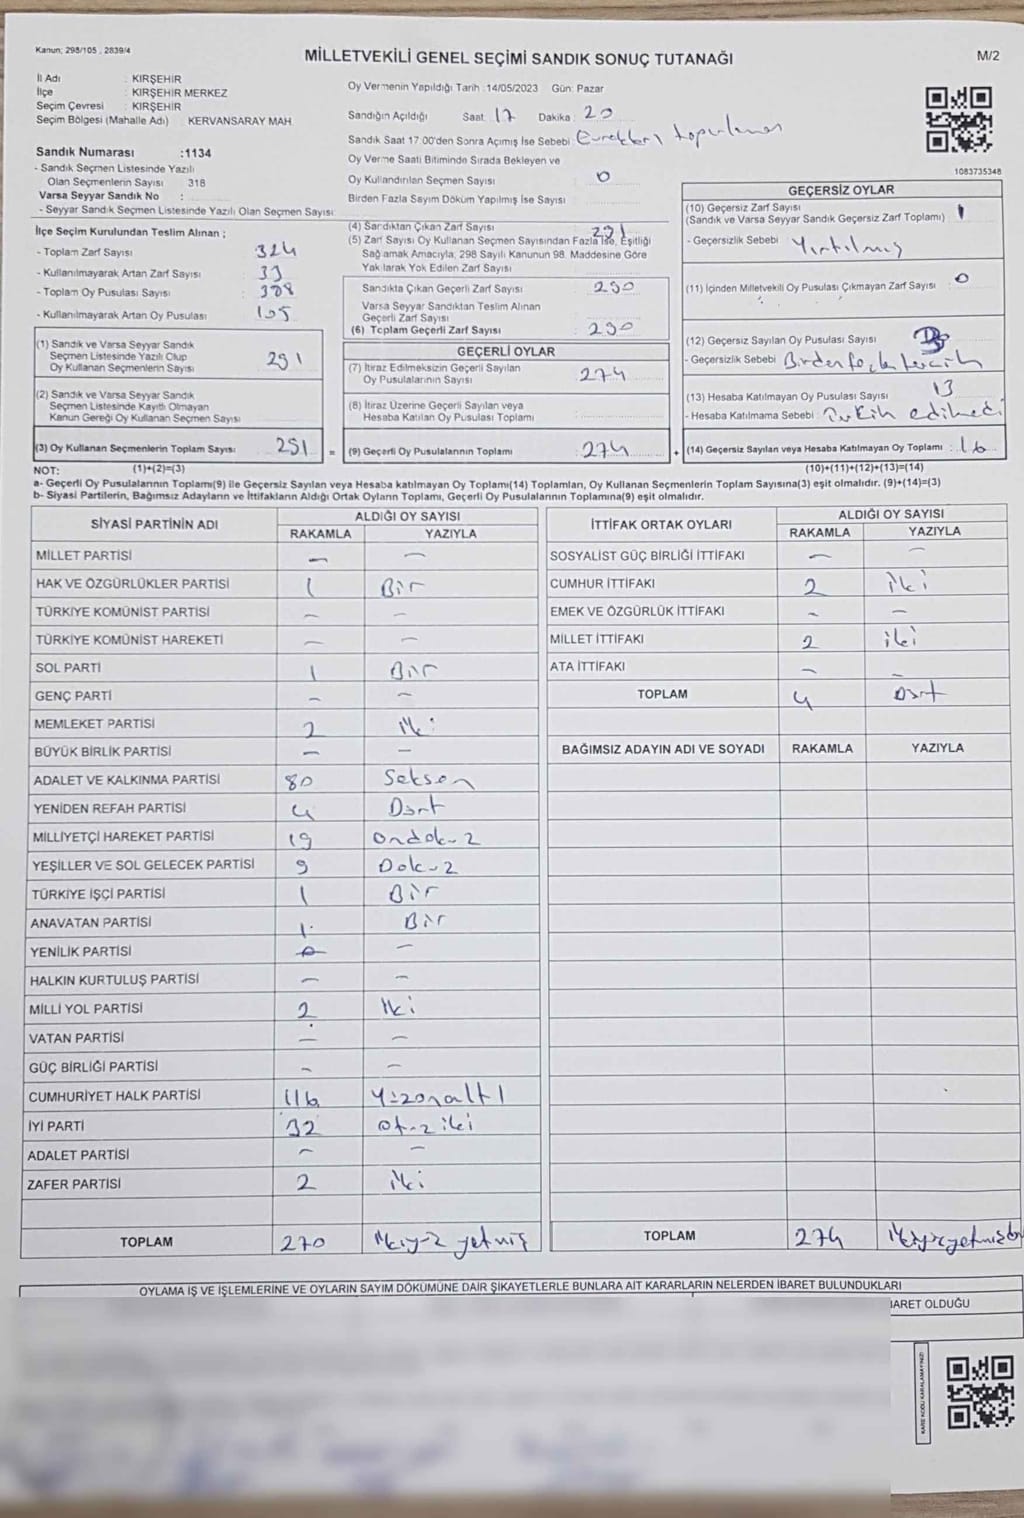 Kanun; 298/105 , 2839/4
MİLLETVEKİLİ GENEL SEÇİMİ SANDIK SONUÇ TUTANAĞI
M/2
İl Adı : KIRŞEHİR
İlçe : KIRŞEHİR MERKEZ
Seçim Çevresi : KIRŞEHİR
Seçim Bölgesi (Mahalle Adı) : KERVANSARAY MAH.
Sandık Numarası :1134
- Sandık Seçmen Listesinde Yazılı
Olan Seçmenlerin Sayısı : 318
Varsa Seyyar Sandık No :
- Seyyar Sandık Seçmen Listesinde Yazılı Olan Seçmen Sayısı:
İlçe Seçim Kurulundan Teslim Alınan ;
- Toplam Zarf Sayısı : 324
- Kullanılmayarak Artan Zarf Sayısı : 33
- Toplam Oy Pusulası Sayısı : 398
- Kullanılmayarak Artan Oy Pusulası : 105
(1) Sandık ve Varsa Seyyar Sandık
Seçmen Listesinde Yazılı Olup
Oy Kullanan Seçmenlerin Sayısı : 291
(2) Sandık ve Varsa Seyyar Sandık
Seçmen Listesinde Kayıtlı Olmayan
Kanun Gereği Oy Kullanan Seçmen Sayısı
(3) Oy Kullanan Seçmenlerin Toplam Sayısı : 291
Oy Vermenin Yapıldığı Tarih :14/05/2023 Gün: Pazar
Sandığın Açıldığı Saat: 17 Dakika : 20
Sandık Saat 17.00'den Sonra Açımış İse Sebebi: Evrakları toparlaman
Oy Verme Saati Bitiminde Sırada Bekleyen ve
Oy Kullandırılan Seçmen Sayısı : 0
Birden Fazla Sayım Döküm Yapılmış İse Sayısı :
(4) Sandıktan Çıkan Zarf Sayısı : 291
(5) Zarf Sayısı Oy Kullanan Seçmen Sayısından Fazla İse, Eşitliği
Sağlamak Amacıyla, 298 Sayılı Kanunun 98. Maddesine Göre
Yakılarak Yok Edilen Zarf Sayısı :
Sandıkta Çıkan Geçerli Zarf Sayısı : 290
Varsa Seyyar Sandıktan Teslim Alınan
Geçerli Zarf Sayısı :
(6) Toplam Geçerli Zarf Sayısı : 290
GEÇERLİ OYLAR
(7) İtiraz Edilmeksizin Geçerli Sayılan
Oy Pusulalarının Sayısı : 274
(8) İtiraz Üzerine Geçerli Sayılan veya
Hesaba Katılan Oy Pusulası Toplamı :
= (9) Geçerli Oy Pusulalarının Toplamı : 274 +
1083735348
GEÇERSİZ OYLAR
(10) Geçersiz Zarf Sayısı : 1
(Sandık ve Varsa Seyyar Sandık Geçersiz Zarf Toplamı)
- Geçersizlik Sebebi : Yırtılmış
(11) İçinden Milletvekili Oy Pusulası Çıkmayan Zarf Sayısı : 0
(12) Geçersiz Sayılan Oy Pusulası Sayısı :
- Geçersizlik Sebebi : Birden fazla tercih
(13) Hesaba Katılmayan Oy Pusulası Sayısı : 13
- Hesaba Katılmama Sebebi : Tercih edilmedi
(14) Geçersiz Sayılan veya Hesaba Katılmayan Oy Toplamı : 16
NOT: (1)+(2)=(3) (10)+(11)+(12)+(13)=(14)
a- Geçerli Oy Pusulalarının Toplamı(9) ile Geçersiz Sayılan veya Hesaba katılmayan Oy Toplamı(14) Toplamları, Oy Kullanan Seçmenlerin Toplam Sayısına(3) eşit olmalıdır. (9)+(14)=(3)
b- Siyasi Partilerin, Bağımsız Adayların ve İttifakların Aldığı Ortak Oyların Toplamı, Geçerli Oy Pusulalarının Toplamına(9) eşit olmalıdır.
SİYASİ PARTİNİN ADI ALDIĞI OY SAYISI
RAKAMLA YAZIYLA
MİLLET PARTİSİ — —
HAK VE ÖZGÜRLÜKLER PARTİSİ 1 Bir
TÜRKİYE KOMÜNİST PARTİSİ — —
TÜRKİYE KOMÜNİST HAREKETİ — —
SOL PARTİ 1 Bir
GENÇ PARTİ — —
MEMLEKET PARTİSİ 2 iki
BÜYÜK BİRLİK PARTİSİ — —
ADALET VE KALKINMA PARTİSİ 80 Seksen
YENİDEN REFAH PARTİSİ 4 Dört
MİLLİYETÇİ HAREKET PARTİSİ 19 Ondokuz
YEŞİLLER VE SOL GELECEK PARTİSİ 9 Dokuz
TÜRKİYE İŞÇİ PARTİSİ 1 Bir
ANAVATAN PARTİSİ 1 Bir
YENİLİK PARTİSİ — —
HALKIN KURTULUŞ PARTİSİ — —
MİLLİ YOL PARTİSİ 2 İki
VATAN PARTİSİ — —
GÜÇ BİRLİĞİ PARTİSİ — —
CUMHURİYET HALK PARTİSİ 116 Yüzonaltı
İYİ PARTİ 32 Otuziki
ADALET PARTİSİ — —
ZAFER PARTİSİ 2 iki
TOPLAM 270 ikiyüzyetmiş
İTTİFAK ORTAK OYLARI ALDIĞI OY SAYISI
RAKAMLA YAZIYLA
SOSYALİST GÜÇ BİRLİĞİ İTTİFAKI — —
CUMHUR İTTİFAKI 2 iki
EMEK VE ÖZGÜRLÜK İTTİFAKI — —
MİLLET İTTİFAKI 2 iki
ATA İTTİFAKI — —
TOPLAM 4 Dört
BAĞIMSIZ ADAYIN ADI VE SOYADI RAKAMLA YAZIYLA
TOPLAM 274
OYLAMA İŞ VE İŞLEMLERİNE VE OYLARIN SAYIM DÖKÜMÜNE DAİR ŞİKAYETLERLE BUNLARA AİT KARARLARIN NELERDEN İBARET BULUNDUKLARI
OLDUĞU
KARE KODU KARALAMAYINIZ!